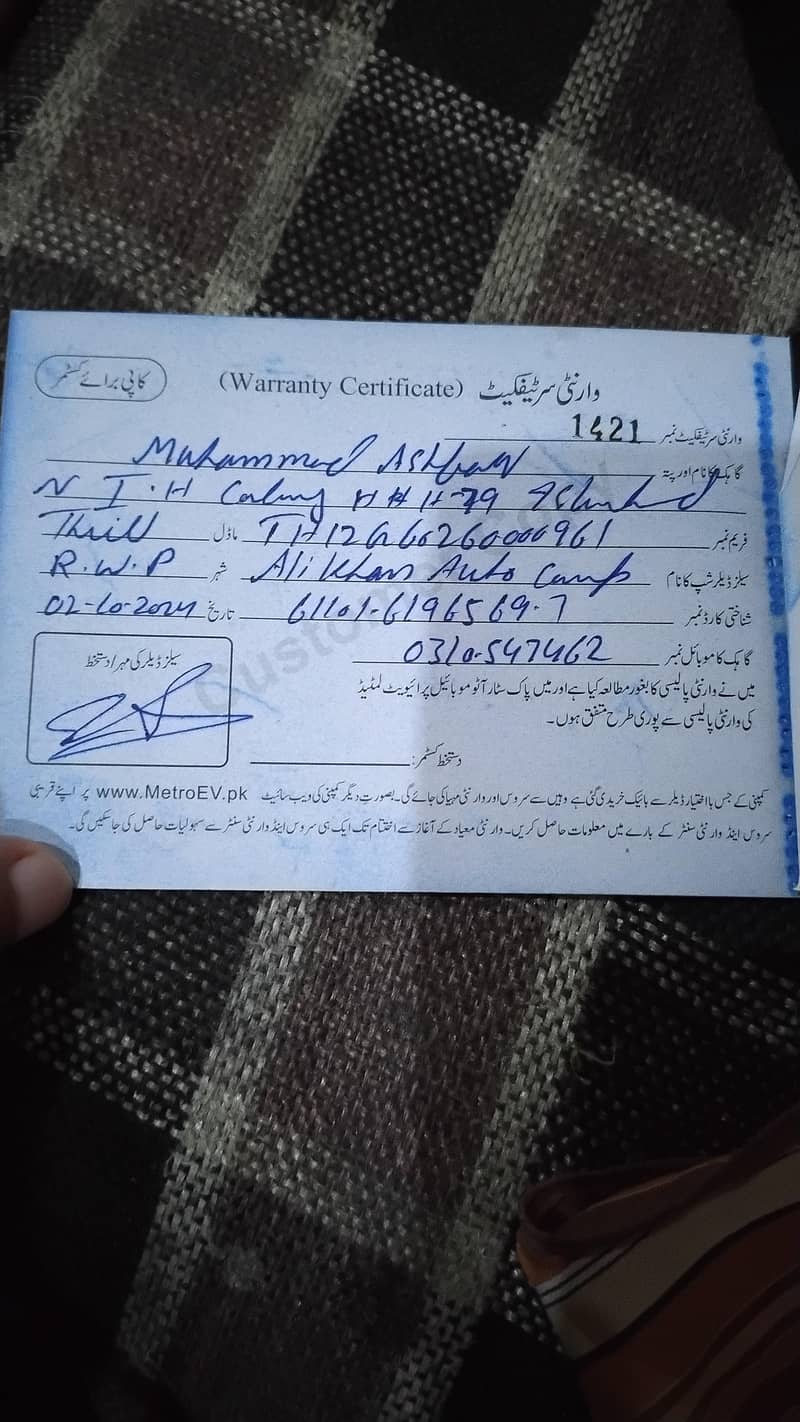 کاپی برائے کسٹمر
وارنٹی سرٹیفکیٹ (Warranty Certificate)
وارنٹی سرٹیفکیٹ نمبر 1421
گاہک کا نام اور پتہ Muhammad Ashfaq
N I.H Colony H # H-79
فریم نمبر TH12G60260000961 ماڈل Thrill
سیلز ڈیلر شپ کا نام Ali Khan Auto Camp شہر R.W.P
شناختی کارڈ نمبر 61101-6196569-7 تاریخ 02-10-2024
گاہک کا موبائل نمبر 0310-547462
سیلز ڈیلر کی مہر / دستخط
میں نے وارنٹی پالیسی کا بغور مطالعہ کیا ہے اور میں پاک سٹار آٹو موبائیل پرائیویٹ لمٹیڈ
کی وارنٹی پالیسی سے پوری طرح متفق ہوں۔
دستخط کسٹمر:
کمپنی کے جس بااختیار ڈیلر سے بائیک خریدی گئی ہے وہیں سے سروس اور وارنٹی مہیا کی جائے گی۔ بصورتِ دیگر کمپنی کی ویب سائیٹ www.MetroEV.pk پر اپنے قریبی
سروس اینڈ وارنٹی سنٹر کے بارے میں معلومات حاصل کریں۔ وارنٹی معیاد کے آغاز سے اختتام تک ایک ہی سروس اینڈ وارنٹی سنٹر سے سہولیات حاصل کی جاسکیں گی۔